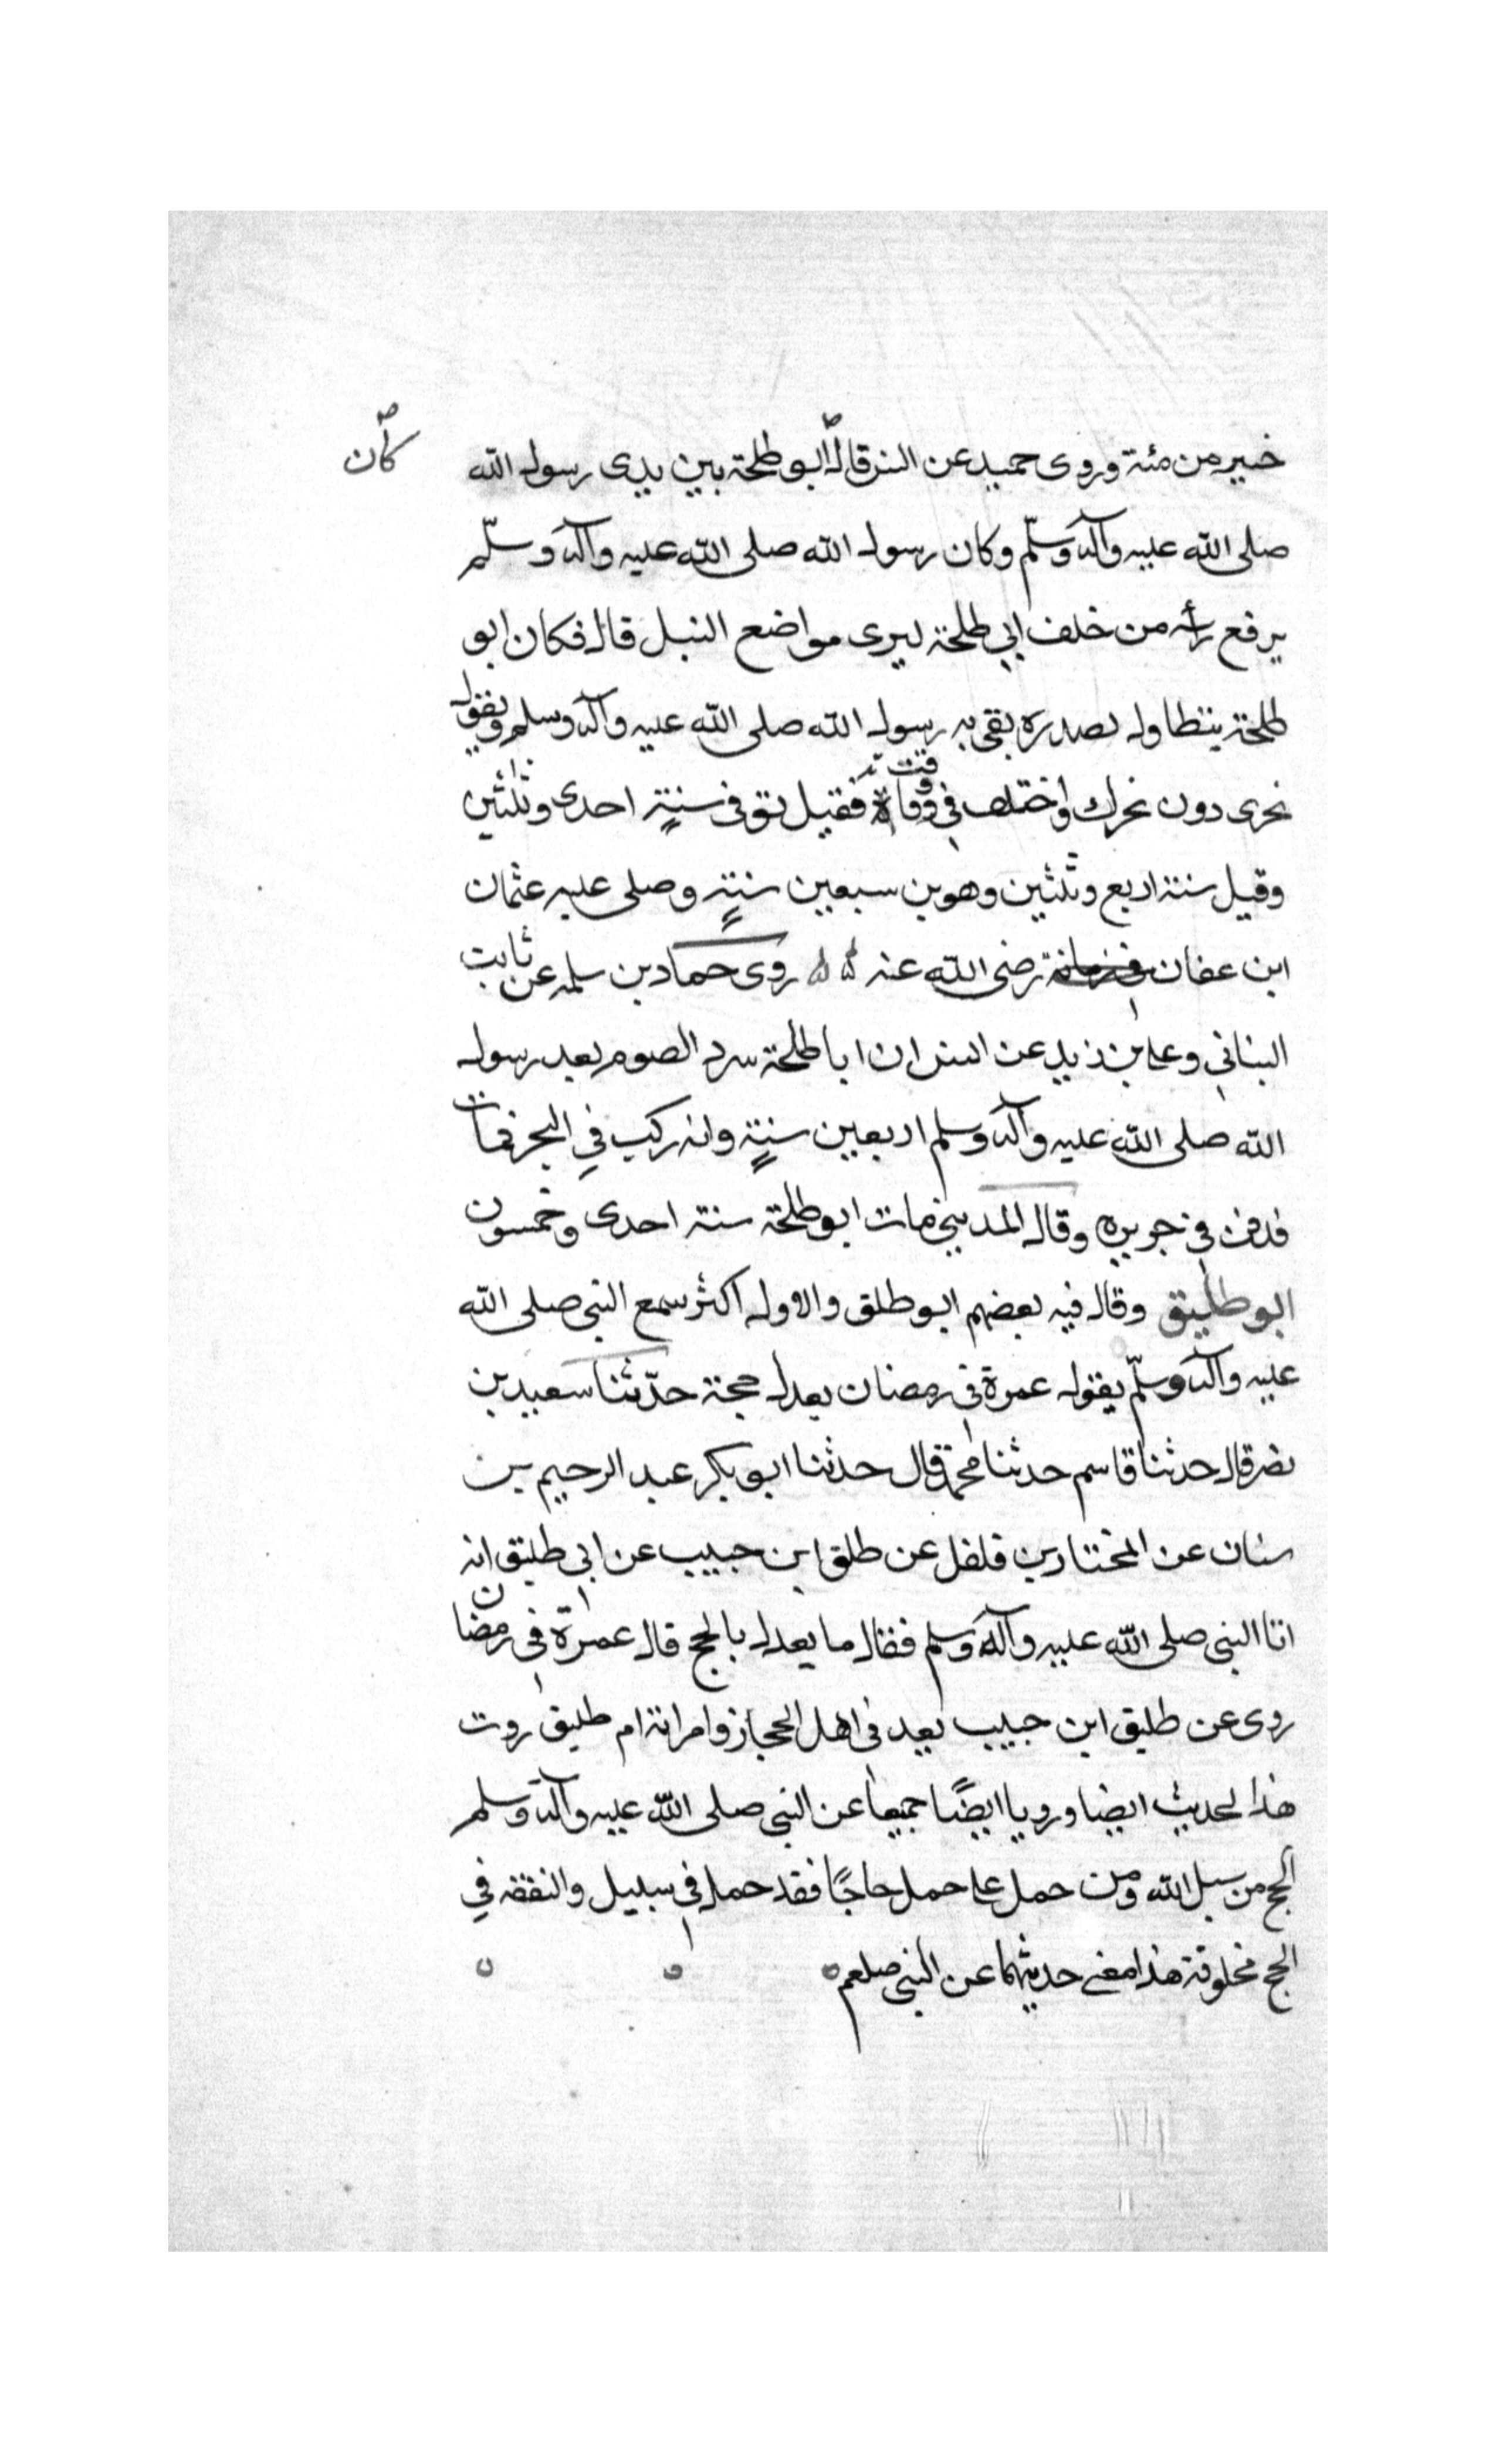 كان
خير من مئة وروى حميد عن انس قال ابو طلحة بين يدى رسول الله
صلى الله عليه وآله وسلّم وكان رسول الله صلى الله عليه وآله وسلّم
يرفع رأسه من خلف ابي طلحة ليرى مواضع النبل قال فكان ابو
طلحة يتطاول بصدره يقى به رسول الله صلى الله عليه وآله وسلم ويقول
نحرى دون نحرك واختلف في وقت وفاته فقيل توفى سنةٍ احدى وثلثين
وقيل سنة اربع وثلثين وهو بن سبعين سنةٍ وصلى عليه عثمان
ابن عفان رضى الله عنه روى حماد بن سلمه عن ثابت
البناني وعلى بن زيد عن انس ان ابا طلحة سرد الصوم بعد رسول
الله صلى الله عليه وآله وسلم اربعين سنةٍ وانه ركب في البحر فمات
فدفن في جزيره وقال المديني مات ابو طلحة سنة احدى وخمسون
ابو طليق وقال فيه بعضهم ابو طلق والاول اكثر سمع النبي صلى الله
عليه وآله وسلّم يقول عمرة في رمضان يعدل حجة حدّثنا سعيد بن
نصر قال حدثنا قاسم حدثنا محمد قال حدثنا ابو بكر عبد الرحيم بن
سنان عن المختار بن فلفل عن طلق ابن حبيب عن ابي طليق انه
اتا النبي صلى الله عليه وآله وسلم فقال ما يعدل بالحج قال عمرة في رمضان
روى عن طليق ابن حبيب يعد في اهل الحجاز وامراته ام طليق روت
هذا الحديث ايضا ورويا ايضًا جميعا عن النبي صلى الله عليه وآله وسلم
الحج من سبل الله ومن حمل على حمل حاجًا فقد حمل في سبيل والنفقه في
الحج مخلوفة هذا معنى حديثهما عن النبي صلعم